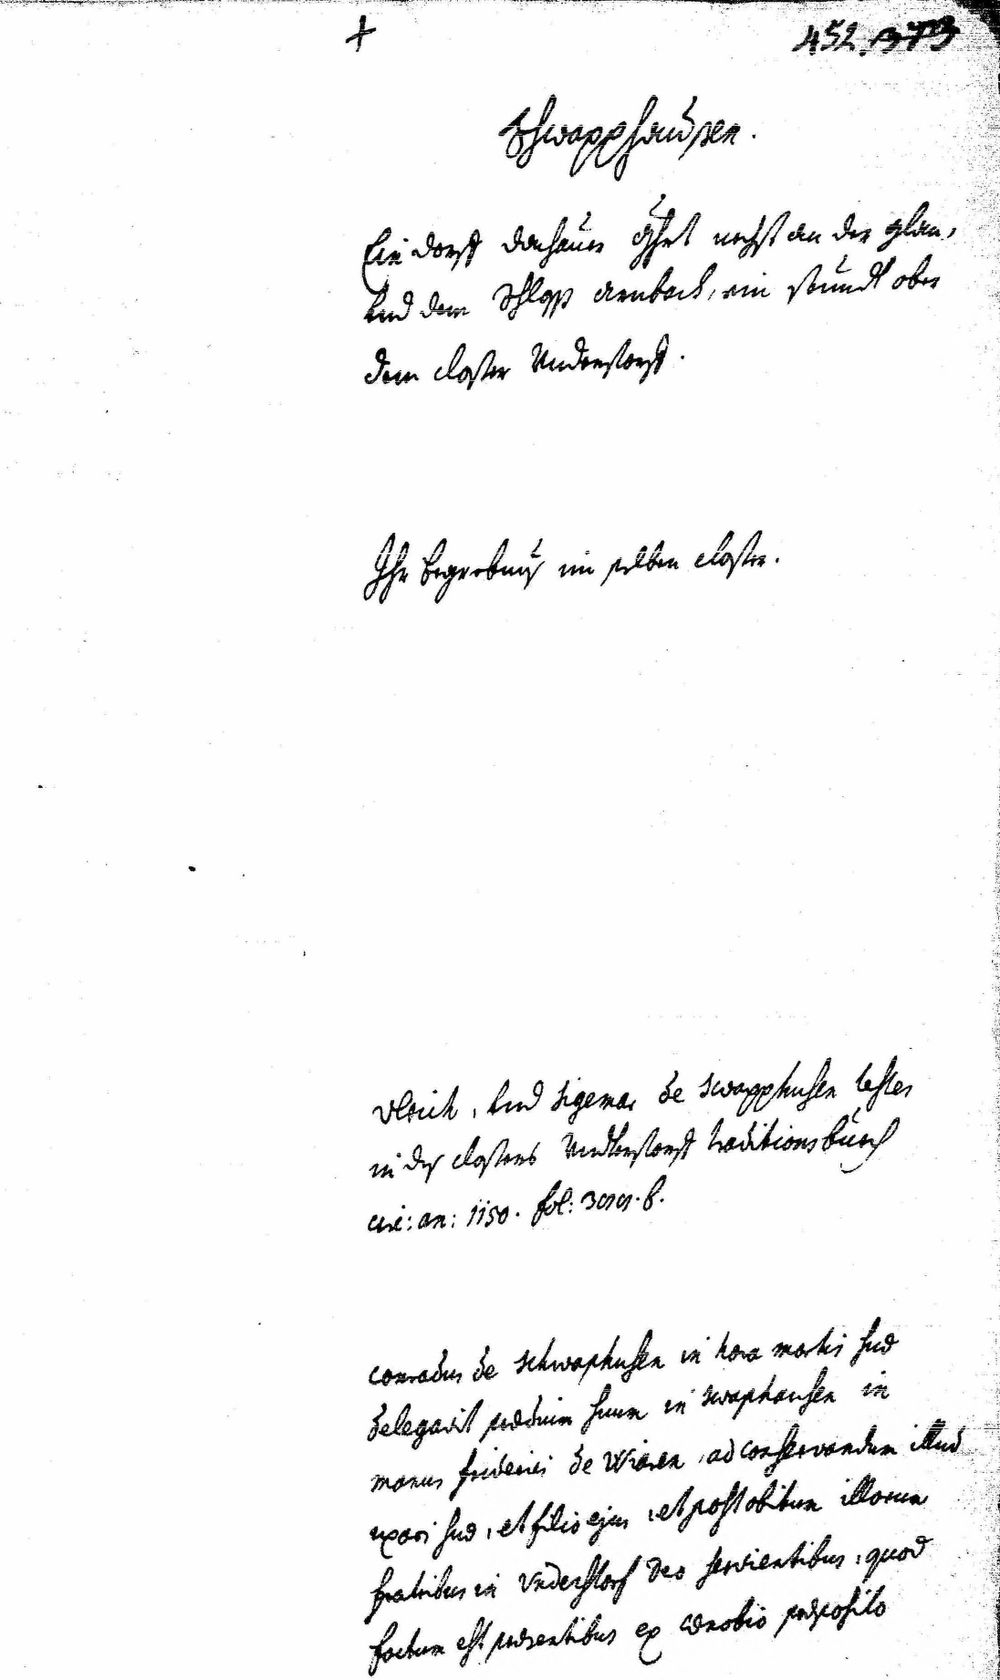 + 452. 373
Schwapphausen.
Ein dorff dachauer ghrt nechst an der glan,
und dem Schloss arnbach, ein stundt ober
dem closter Understorff.
Ihr begrebnus im selben closter.
Ulrich, und Sigemar de swapphusen testes
in des closters Understorff traditionsbuech
circ: an: 1150. fol: f.
conradus de schwaphusen in hora mortis suæ
delegavit prædium suum in swaphausen in
manus friderici de Wiaren, ad conservandum illud
uxori suæ, et filio ejus, et post obitum illorum
fratribus in Understorf deo servientibus, quod
factum est præsentibus ex cænobio præposito